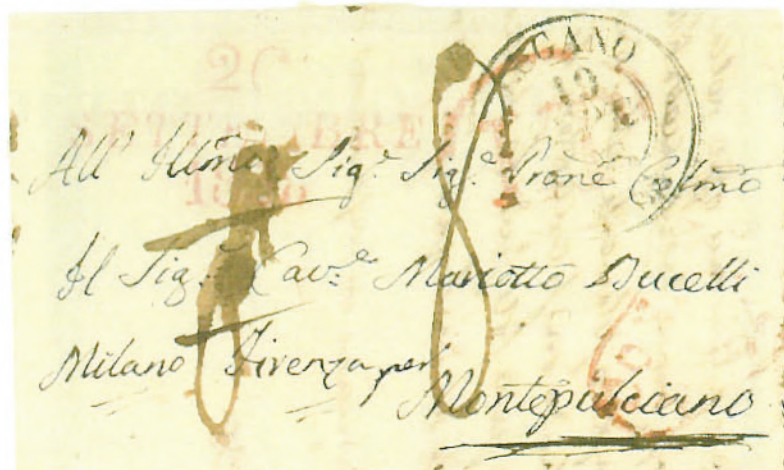 GANO
19
2
SETTEMBRE
All' Illmo Sig.e Sig.e Prone Colmo
Il Sig.e Cav.e Mariotto Bucelli
Milano Firenza per
Montepulciano
8